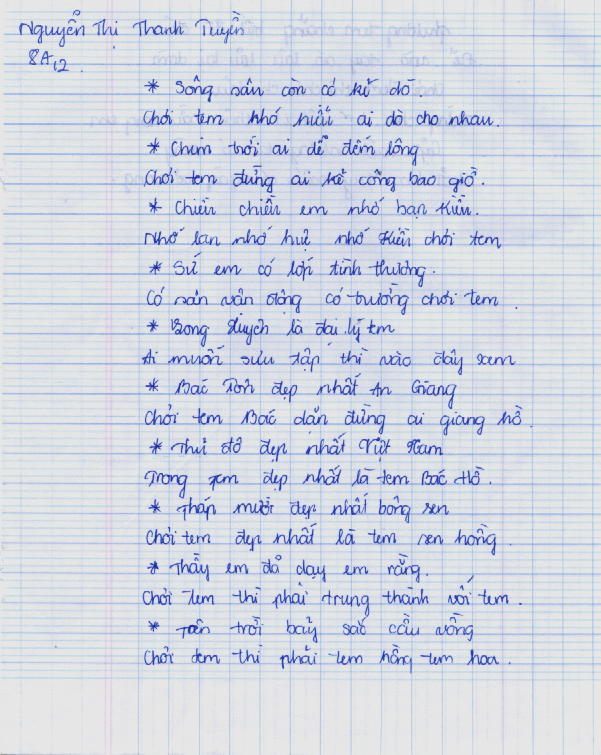 Nguyễn Thị Thanh Tuyền
8A12
* Sông sâu còn có kẻ dò
Chơi tem khó hiểu ai dò cho nhau.
* Chim trời ai dễ đếm lông
Chơi tem đừng ai kể công bao giờ.
* Chiều chiều em nhớ bạn Kiều.
Nhớ lan nhớ huệ nhớ Kiều chơi tem
* Sứ em có lớp tình thương.
Có sân vân động có trường chơi tem.
* Bong Huỵch là đại lý tem
Ai muốn sưu tập thì vào đây xem
* Bác Tôn đẹp nhất An Giang
Chơi tem Bác dặn đừng ai giang hồ.
* Thủ đô đẹp nhất Việt Nam
Trong tem đẹp nhất là tem Bác Hồ.
* Tháp mười đẹp nhất bông sen
Chơi tem đẹp nhất là tem sen hồng.
* Thầy em đã dạy em rằng.
Chơi tem thì phải trung thành với tem.
* Trên trời bảy sắc cầu vồng
Chơi tem thì phải tem hồng tem hoa.